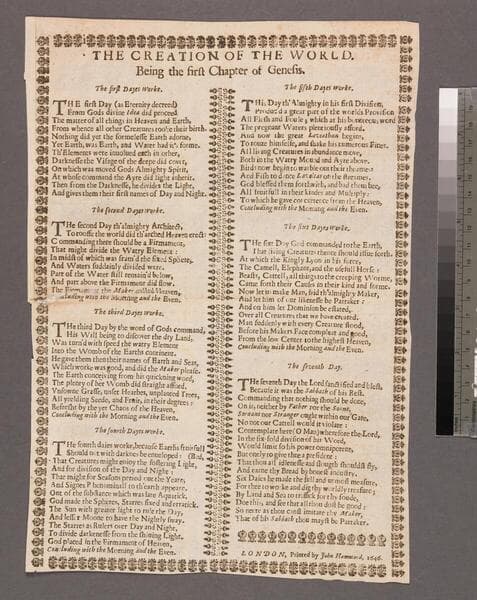 THE CREATION OF THE WORLD.
Being the first Chapter of Genesis.
The first Dayes Worke.
THE first Day (as Eternity decreed)
From Gods divine Idea did proceed
The matter of all things in Heaven and Earth,
From whence all other Creatures tooke their birth.
Nothing did yet the formelesse Earth adorne,
Yet Earth, was Earth, and Water had it's forme.
Th'Elements were involued each in other,
Darknesse the Visage of the deepe did cover,
On which was moved Gods Almighty Spirit,
At whose command the Ayre did light inherit.
Then from the Darknesse, he divides the Light,
And gives them their first names of Day and Night.
The second Dayes Worke.
THe second Day th'almighty Architect,
To roofe the world did th'arched Heaven erect:
Commanding there should be a Firmament,
That might divide the Watry Element:
In midst of which was fram'd the fixed Sphere,
And Waters suddainly divided were.
Part of the Water still remain'd below,
And part above the Firmament did flow.
The Firmament the Maker called Heaven,
Concluding with the Morning and the Even.
The third Dayes Worke.
THe third Day by the word of Gods command,
His Will being to discover the dry Land,
Was turn'd with speed the watry Element
Into the Womb of the Earths continent.
He gave them then their names of Earth and Seas,
Which worke was good, and did the Maker please.
The Earth conceiving from his quickning word,
The plenty of her Womb did straight afford,
Grasse, Hearbes, unplanted Trees,
All yeelding Seede, and Fruit, in their degrees:
Before by the yet Chaos of the Heaven,
Concluding with the Morning and the Even.
The fourth Dayes Worke.
THe fourth daies worke, because Earths fruitfull
Should not with darknes be enveloped:
That Creatures might enjoy the fostering Light,
And for division of the Day and Night:
That might for Seasons period out the Yeare,
And Signes Phenominall to th'earth appeare.
Out of the substance which was late Aquatick,
God made the Spheres, Starres fixed and erratick.
The Sun with greater light to rule the Day,
And lesser Moone to have the Nightly sway.
The Starres as Rulers over Day and Night,
To divide darkenesse from the shining Light.
God placed in the Firmament of Heaven,
Concluding with the Morning and the Even.
The fifth Dayes Worke.
THis Day th'Almighty in his first Division,
Provided a great part of the worlds Provision
All Flesh and Foule, which at his word
The pregnant Waters plenteously afford.
And now the great begins,
To rouze himselfe, and shake his numerous Finnes.
All living Creatures in abundance move,
Both in the Watry Mound and Ayre above.
Birds now begin to warble out their
And Fish to dance
God blessed them forthwith, and bad them bee,
All fruitfull in their kindes and Multiply:
To which he gave from the Heaven,
Concluding with the Morning and the Even.
The sixt Dayes Worke.
THe sixt Day God commanded to the Earth,
That living Creatures thence should issue forth.
At which the Kingly Lyon in his force,
The Camell, Elephant, and the usefull Horse:
Beasts, Cattell, all things to the creeping Worme,
Came forth their Cattle in their kind and forme.
Now let us make Man, said th'Almighty Maker,
And let him of our likenesse be Partaker:
And on him let Dominion be estated,
Over all Creatures that we have created.
Man suddenly with every Creature stood,
Before his Makers Face compleat and good,
From the low Center to the highest Heaven,
Concluding with the Morning and the Even.
The seventh Day.
THe seventh Day the Lord sanctified and blest,
Because it was the Sabbath of his Rest.
Commanding that nothing should be done,
On it, neither by Father nor the Sonne,
Servant nor Stranger ought within our Gate,
No not our Cattell would it violate:
Contemplate here (O Man) wherefore the Lord,
In the six-fold division of his Word,
Would limit so his power omnipotent,
But onely to give thee a president:
That thou all idlenesse and slough should'st fly,
And earne thy Bread by honest industry.
Six Daies he made the full and utmost measure,
For thee to worke and dig thy worldly treasure;
By Land and Sea to traffick for thy foode,
Doe this, and see that all thou dost be good:
So
That of his Sabbath thou mayst be Partaker.
LONDON, Printed by John Hammond, 1646.